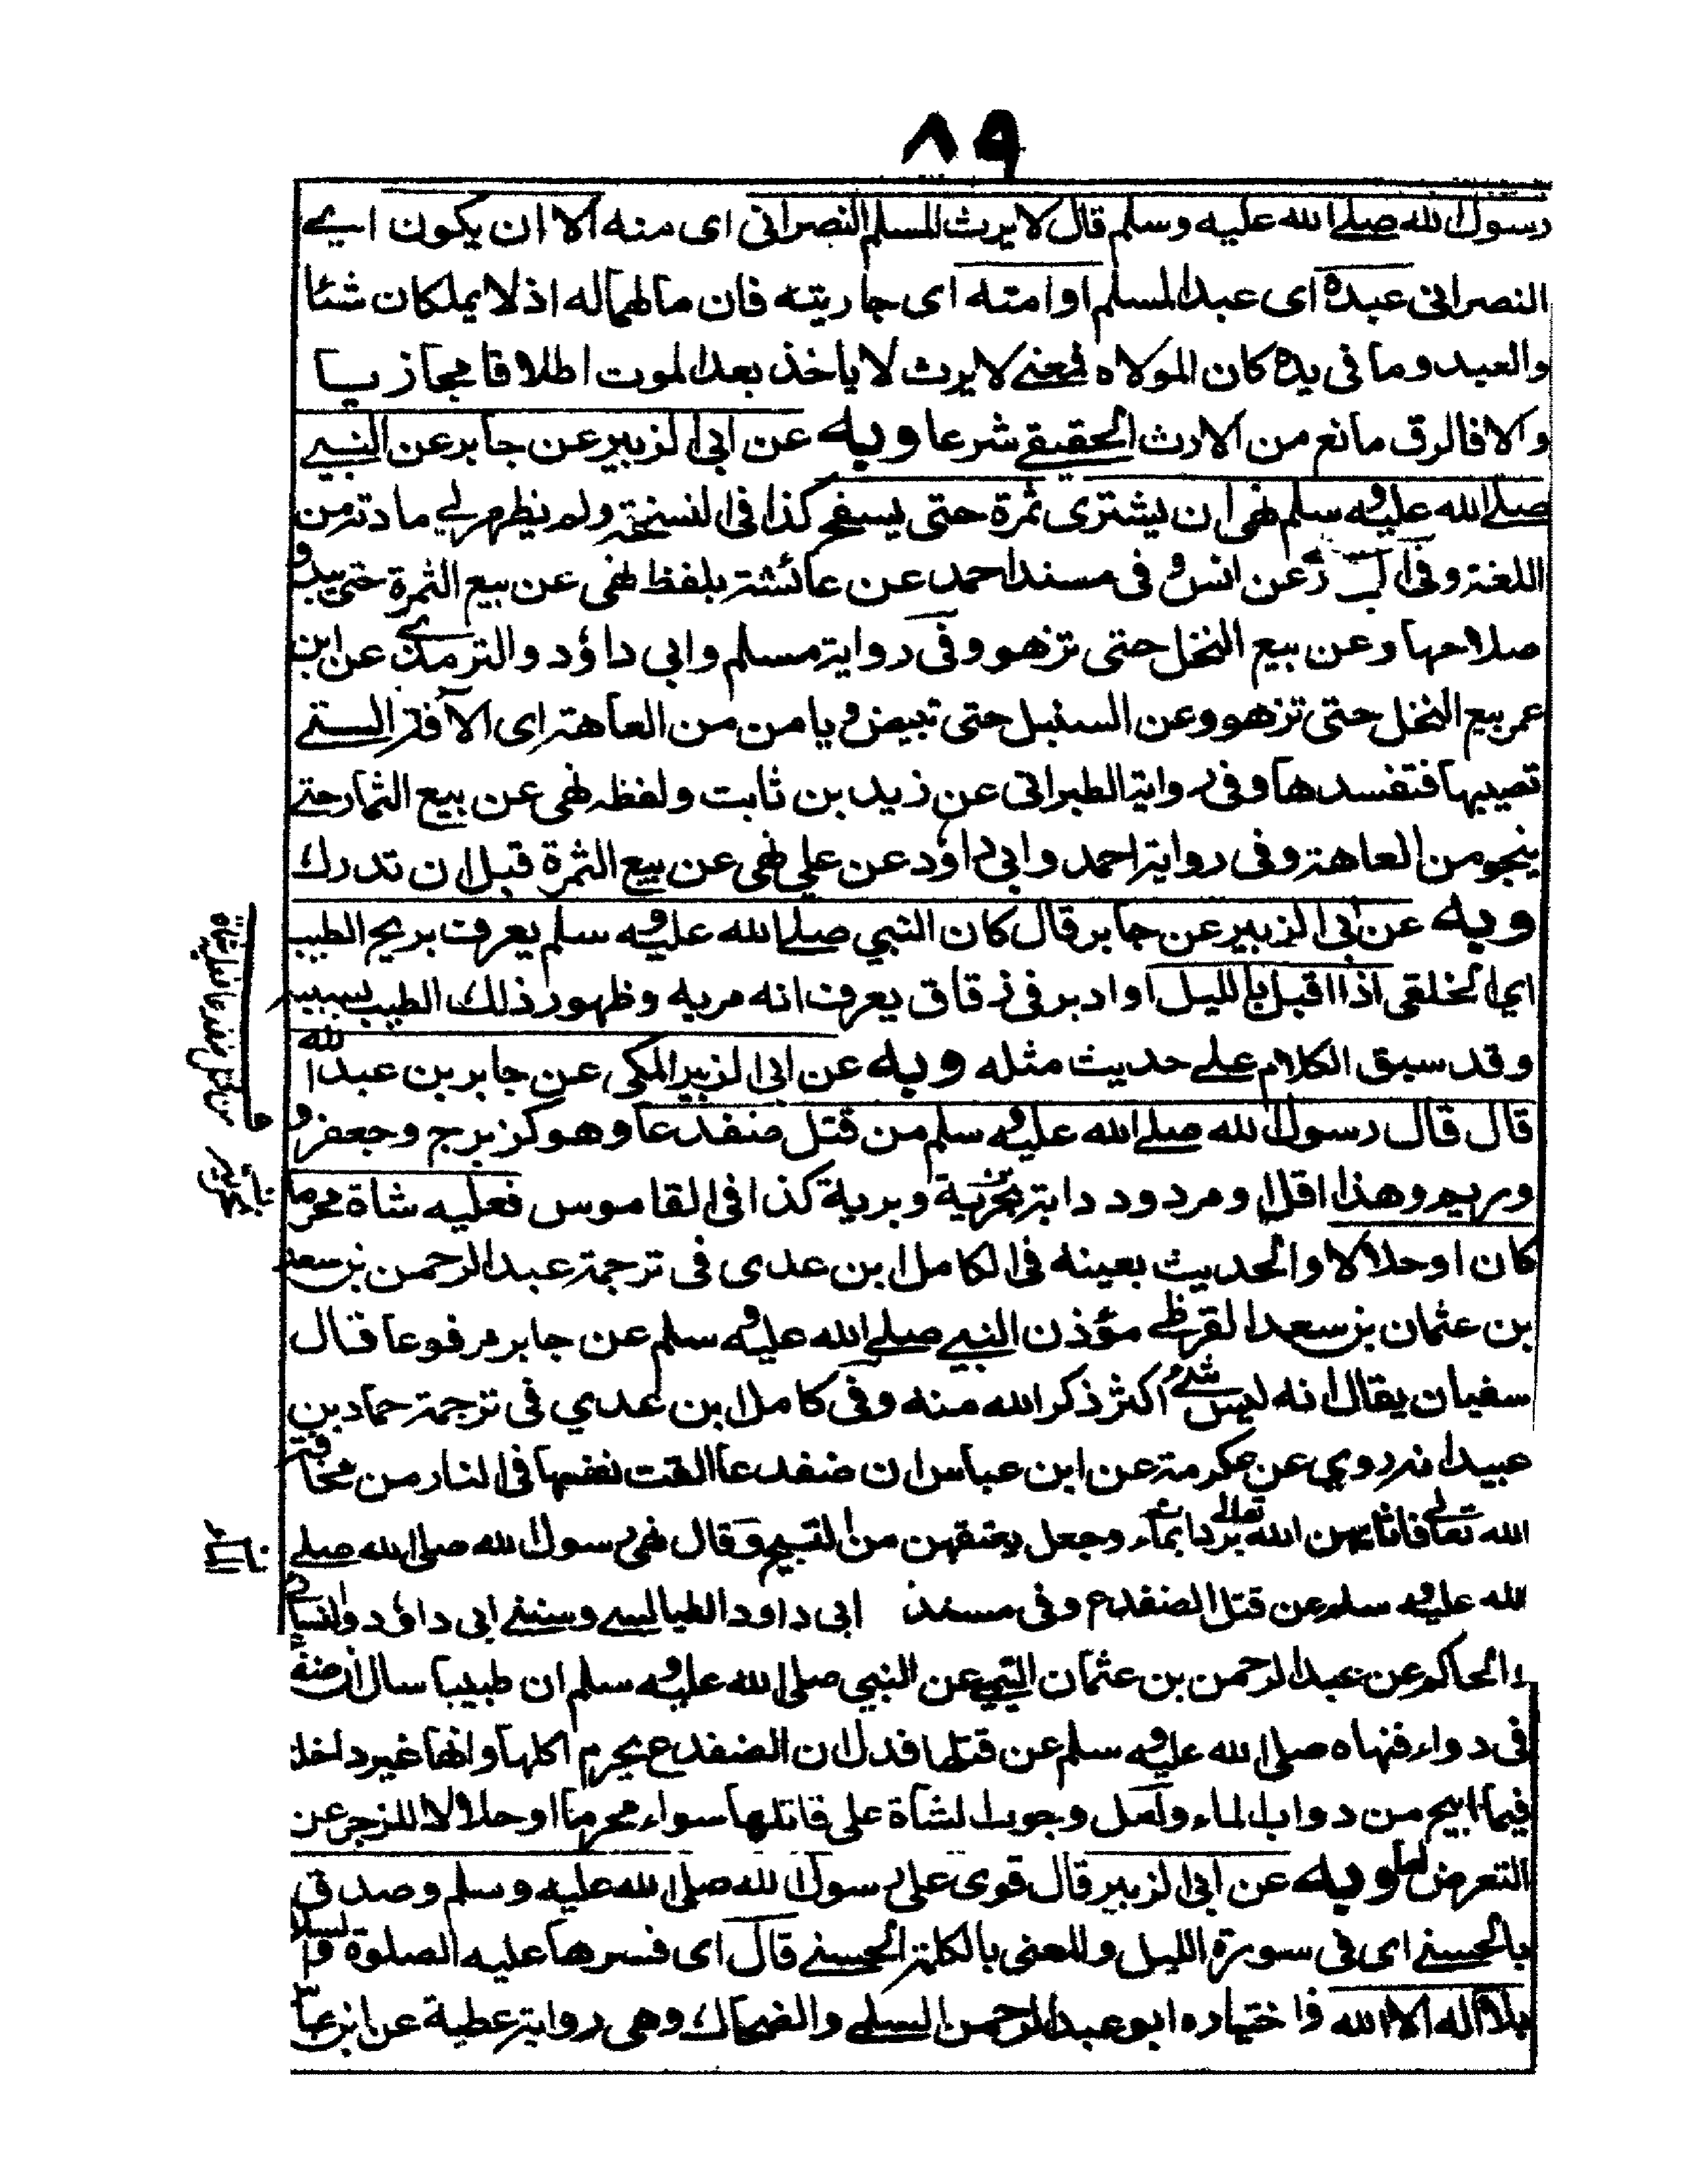 ٨٩
رسول الله صلے الله عليه وسلم قال لا يرث المسلم النصرانى اى منه الا ان يكون اے
النصرانى عبده اى عبد المسلم او امته اى جاريته فان مالهما له اذ لا يملكان شئا
والعبد وما فى يده كان لمولاه فمعنے لا يرث لا ياخذ بعد الموت اطلاقا مجازيا
والا فالرق مانع من الارث الحقيقے شرعا وبه عن ابى الزبير عن جابر عن النبے
صلے الله عليه وسلم نهى ان يشترى ثمرة حتى يسفح كذا فى النسخة ولم يظهر لے مادته من
اللغة وفى عن انس و فى مسند احمد عن عائشة بلفظ نهى عن بيع الثمرة حتى يبدو
صلاحها وعن بيع النخل حتى تزهو وفى رواية مسلم وابى داؤد والترمذے عن ابن
عمر بيع النخل حتى تزهو وعن السنبل حتى تبيض ويامن من العاهة اى الآفة الستے
تصيبها فتفسدها وفى رواية الطبرانى عن زيد بن ثابت ولفظه نهى عن بيع الثمار حتے
ينجو من العاهة وفى رواية احمد وابى داؤد عن علي نهى عن بيع الثمرة قبل ان تدرك
وبه عن ابى الزبير عن جابر قال كان النبي صلے الله عليه وسلم يعرف بريح الطيب
اى الخلقى اذا اقبل بالليل او ادبر فى زقاق يعرف انه مر به وظهور ذلك الطيب بسببه
وقد سبق الكلام علے حديث مثله وبه عن ابى الزبير المكى عن جابر بن عبد الله
قال قال رسول الله صلے الله عليه وسلم من قتل ضفدعا وهو كزبرج وجعفر و
ودرهم وهذا اقل او مردود دابة بحرية وبرية كذا فى القاموس فعليه شاة محرما
كان او حلالا والحديث بعينه فى الكامل ابن عدى فى ترجمة عبد الرحمن بن سعد
بن عثمان بن سعد القرظے مؤذن النبے صلے الله عليه وسلم عن جابر مرفوعا قال
سفيان يقال انه ليس شئ اكثر ذكر الله منه وفى كامل ابن عدي فى ترجمة حماد بن
عبيد انه روي عن عكرمة عن ابن عباس ان ضفدعا القت نفسها فى النار من مخافة
الله تعالے فاثابهن الله تعالى برد الماء وجعل يعتقهن من التسبيح وقال نهى رسول الله صلى الله صلے
الله عليه وسلم عن قتل الضفدع وفى مسند ابى داود الطيالسے وسننے ابى داؤد والنسائے
و الحاكم عن عبد الرحمن بن عثمان التيمے عن النبي صلى الله عليه وسلم ان طبيبا ساله ان ضفدعا
فى دواء فنهاه صلى الله عليه وسلم عن قتلها فدل ان الضفدع يحرم اكلها وانها غير داخلة
فيما ابيح من دواب الماء ولعل وجوب الشاة على قاتلها سواء محرما او حلالا للزجر عن
التعرض لها وبه عن ابى الزبير قال قوى على رسول الله صلى الله عليه وسلم وصدق
بالحسنے اى فى سورة الليل والمعنى بالكلمة الحسنے قال اى فسرها عليه الصلوة والسلام
بلا اله الا الله واختياره ابو عبد الرحمن السلمے والضحاك وهى رواية عطية عن ابن عباس